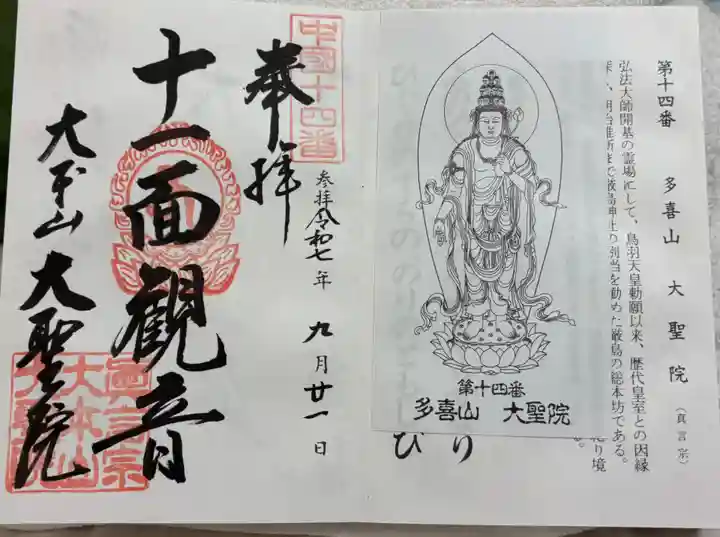 第十四番 多喜山 大聖院 (真言宗)
弘法大師開基の霊場にして、鳥羽天皇勅願以来、歴代皇室との因縁
深く、明治維新まで厳島神社の別当を勤めた厳島の総本坊である。
り境
る。
第十四番
多喜山 大聖院
り
び
中国十四番
奉拝
参拝令和七年九月廿一日
十一面観音
大本山大聖院
真言宗
大本山